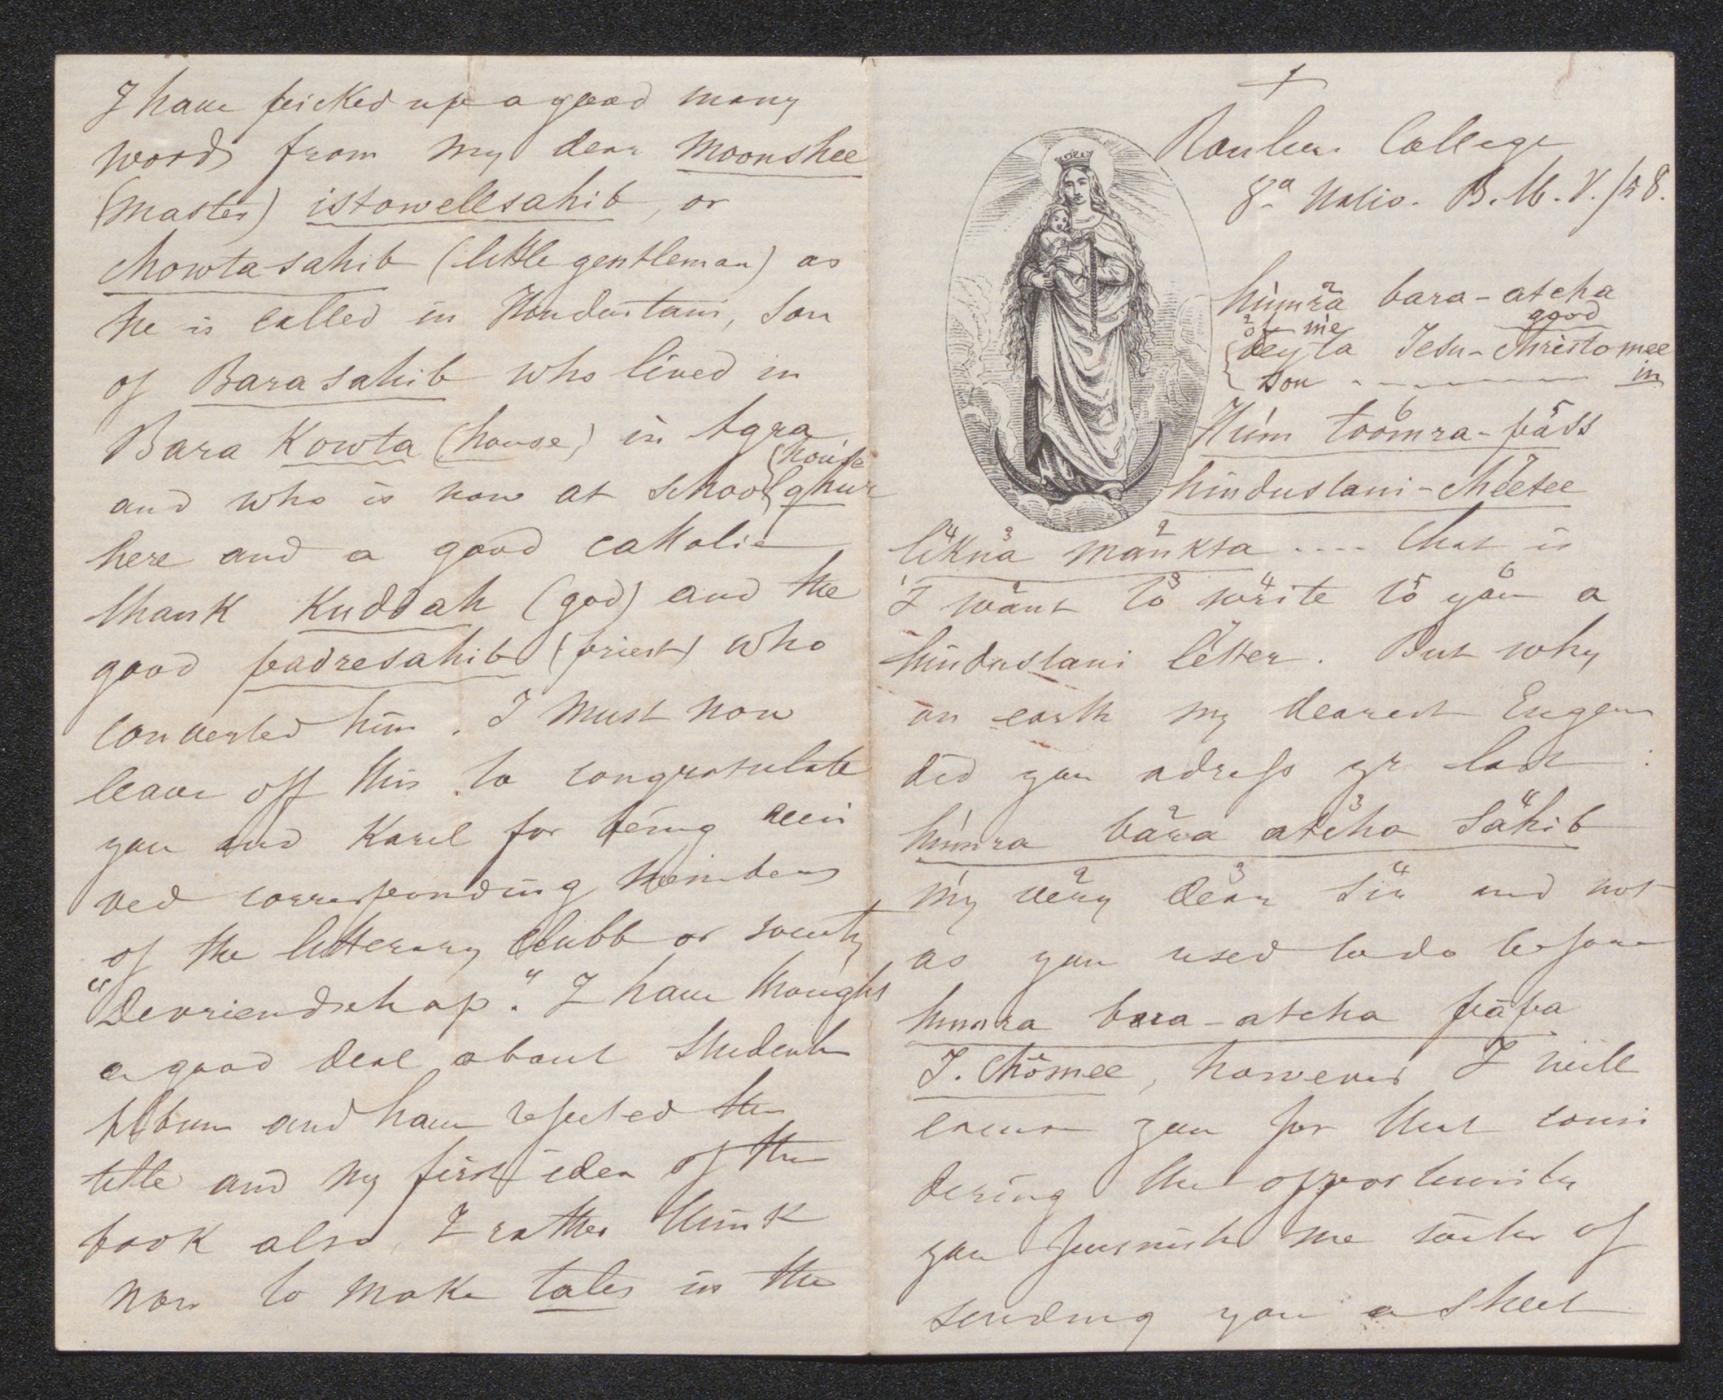 Roulers College
8a Nativ. B. M. V. /58.
húmra bara-atcha
good
of me
beyta Jesu-Christo mee
son - - - - - - - in
Húm toomra-páss
hindustani-chéetee
likna mánkta .... that is
I want to write to you a
hindustani letter. But why
on earth my dearest Eugen
did you adress yr last :
húmra bára atcha Sáhib
my very dear Sir and not
as you used to do before
humra bara-atcha pápa
J. Chómee, however I will
excuse you for that consi
dering the opportunity
you furnish me with of
sending you a sheet
I have picked up a good many
words from my dear Moonshee
(master) istowellsahib, or
chowtasahib (little gentleman) as
he is called in Hindustani, son
of Barasahib who lived in
Bara Kowta (house) in Agra
house
and who is now at school ghur
here and a good catholic
thank Kuddah (god) and the
good padresahib (priest) who
converted him. I must now
leave off this to congratulate
you and Karel for being recei
ved corresponding members
of the litterary Clubb or society
"Devriendschap." I have thought
a good deal about Students
Album and have rejected the
title and my first idea of the
book also, I rather think
now to make tales in the